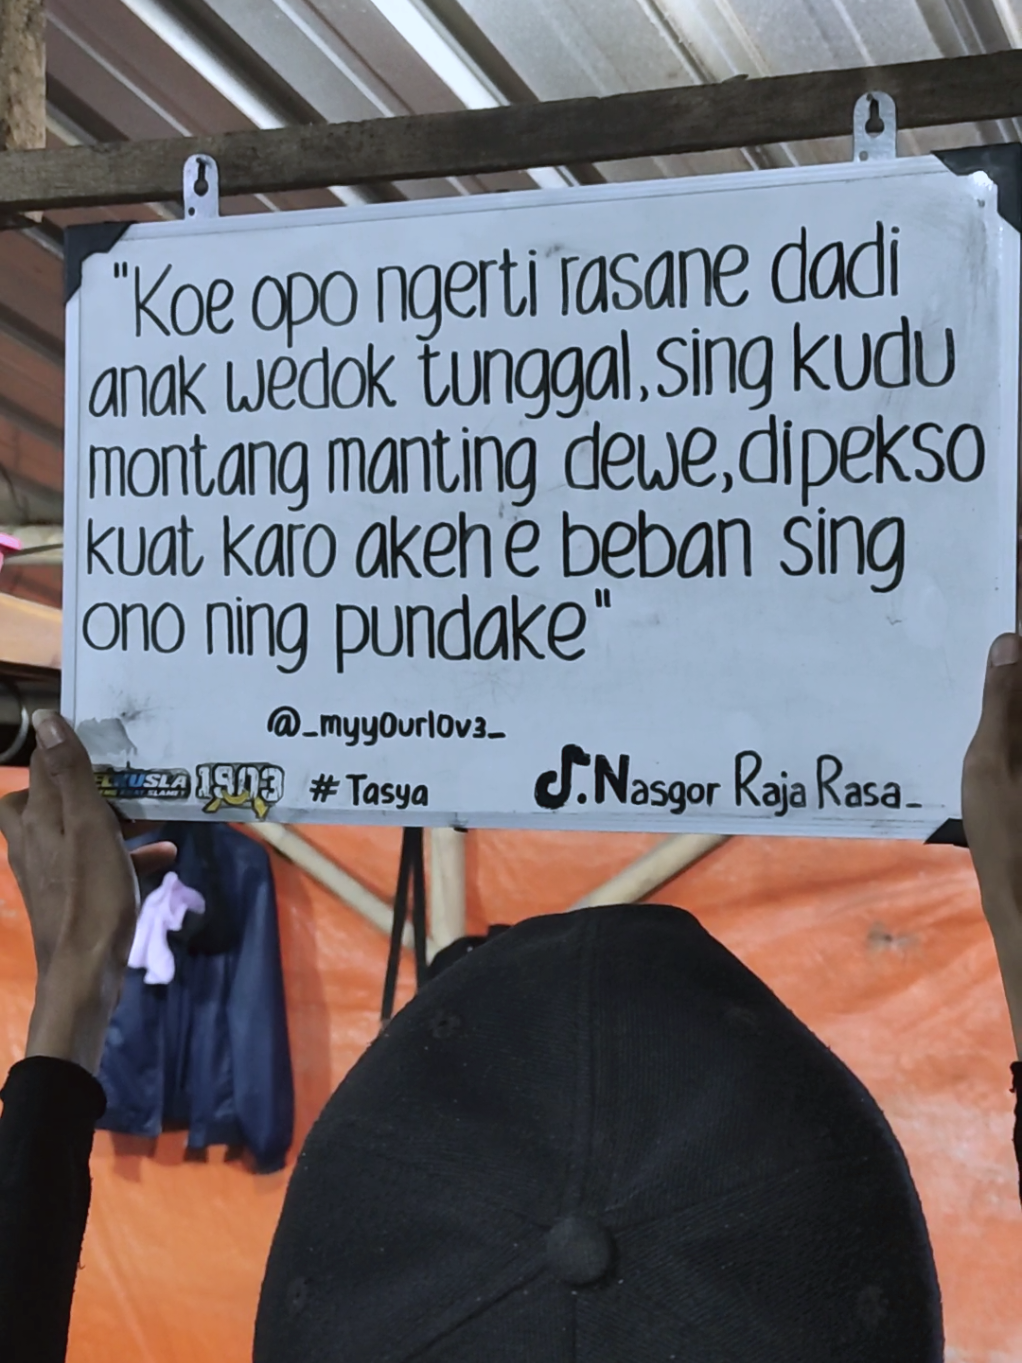 "Koe opo ngerti rasane dadi
anak wedok tunggal, sing kudu
montang manting dewe, dipekso
kuat karo akehe beban sing
ono ning pundake"
@_myy0url0v3_
1903 # Tasya
Nasgor Raja Rasa_